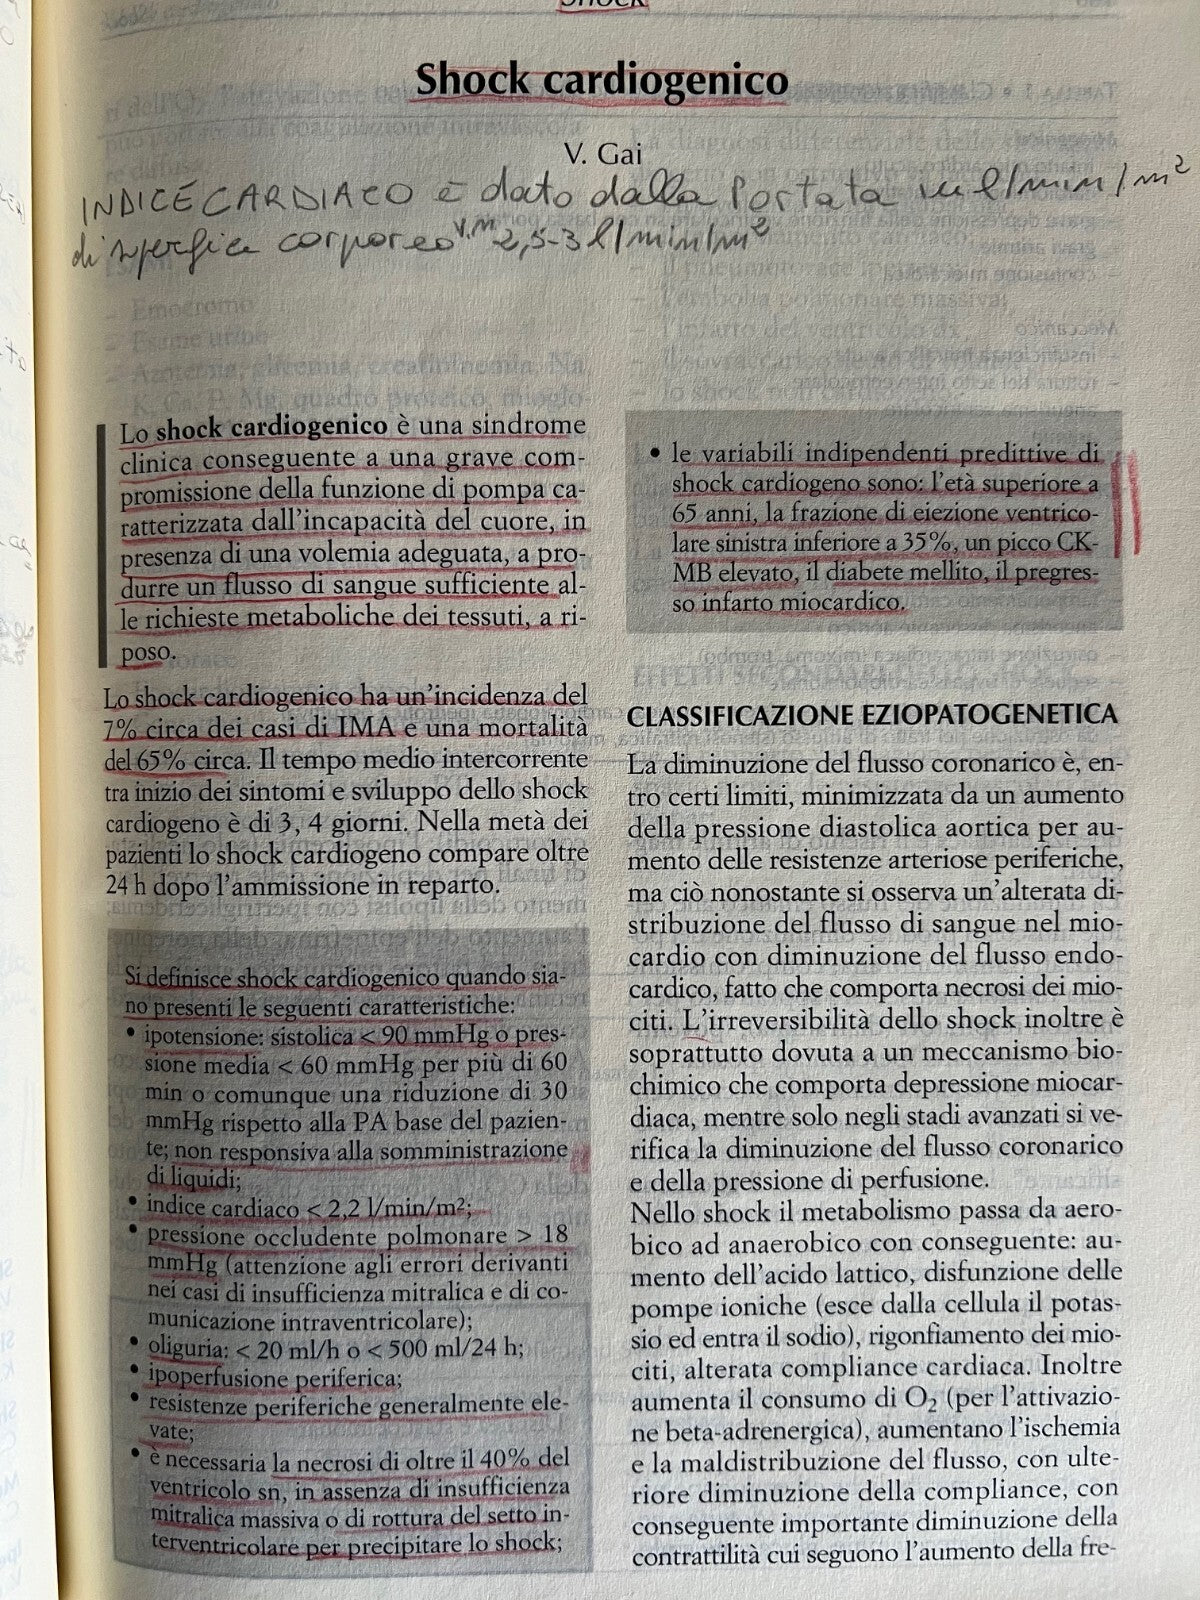 Shock
Shock cardiogenico
V. Gai
INDICE CARDIACO è dato dalla Portata in l/min/m²
di superfice corporeo V.M 2,5-3 l/min/m²
Lo shock cardiogenico è una sindrome
clinica conseguente a una grave com-
promissione della funzione di pompa ca-
ratterizzata dall'incapacità del cuore, in
presenza di una volemia adeguata, a pro-
durre un flusso di sangue sufficiente al-
le richieste metaboliche dei tessuti, a ri-
poso.
Lo shock cardiogenico ha un'incidenza del
7% circa dei casi di IMA e una mortalità
del 65% circa. Il tempo medio intercorrente
tra inizio dei sintomi e sviluppo dello shock
cardiogeno è di 3, 4 giorni. Nella metà dei
pazienti lo shock cardiogeno compare oltre
24 h dopo l'ammissione in reparto.
Si definisce shock cardiogenico quando sia-
no presenti le seguenti caratteristiche:
• ipotensione: sistolica < 90 mmHg o pres-
sione media < 60 mmHg per più di 60
min o comunque una riduzione di 30
mmHg rispetto alla PA base del pazien-
te; non responsiva alla somministrazione
di liquidi;
• indice cardiaco < 2,2 l/min/m²;
• pressione occludente polmonare > 18
mmHg (attenzione agli errori derivanti
nei casi di insufficienza mitralica e di co-
municazione intraventricolare);
• oliguria: < 20 ml/h o < 500 ml/24 h;
• ipoperfusione periferica;
• resistenze periferiche generalmente ele-
vate;
• è necessaria la necrosi di oltre il 40% del
ventricolo sn, in assenza di insufficienza
mitralica massiva o di rottura del setto in-
terventricolare per precipitare lo shock;
• le variabili indipendenti predittive di
shock cardiogeno sono: l'età superiore a
65 anni, la frazione di eiezione ventrico-
lare sinistra inferiore a 35%, un picco CK-
MB elevato, il diabete mellito, il pregres-
so infarto miocardico.
CLASSIFICAZIONE EZIOPATOGENETICA
La diminuzione del flusso coronarico è, en-
tro certi limiti, minimizzata da un aumento
della pressione diastolica aortica per au-
mento delle resistenze arteriose periferiche,
ma ciò nonostante si osserva un'alterata di-
stribuzione del flusso di sangue nel mio-
cardio con diminuzione del flusso endo-
cardico, fatto che comporta necrosi dei mio-
citi. L'irreversibilità dello shock inoltre è
soprattutto dovuta a un meccanismo bio-
chimico che comporta depressione miocar-
diaca, mentre solo negli stadi avanzati si ve-
rifica la diminuzione del flusso coronarico
e della pressione di perfusione.
Nello shock il metabolismo passa da aero-
bico ad anaerobico con conseguente: au-
mento dell'acido lattico, disfunzione delle
pompe ioniche (esce dalla cellula il potas-
sio ed entra il sodio), rigonfiamento dei mio-
citi, alterata compliance cardiaca. Inoltre
aumenta il consumo di O₂ (per l'attivazio-
ne beta-adrenergica), aumentano l'ischemia
e la maldistribuzione del flusso, con ulte-
riore diminuzione della compliance, con
conseguente importante diminuzione della
contrattilità cui seguono l'aumento della fre-